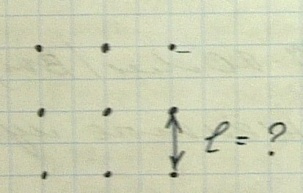 l = ?